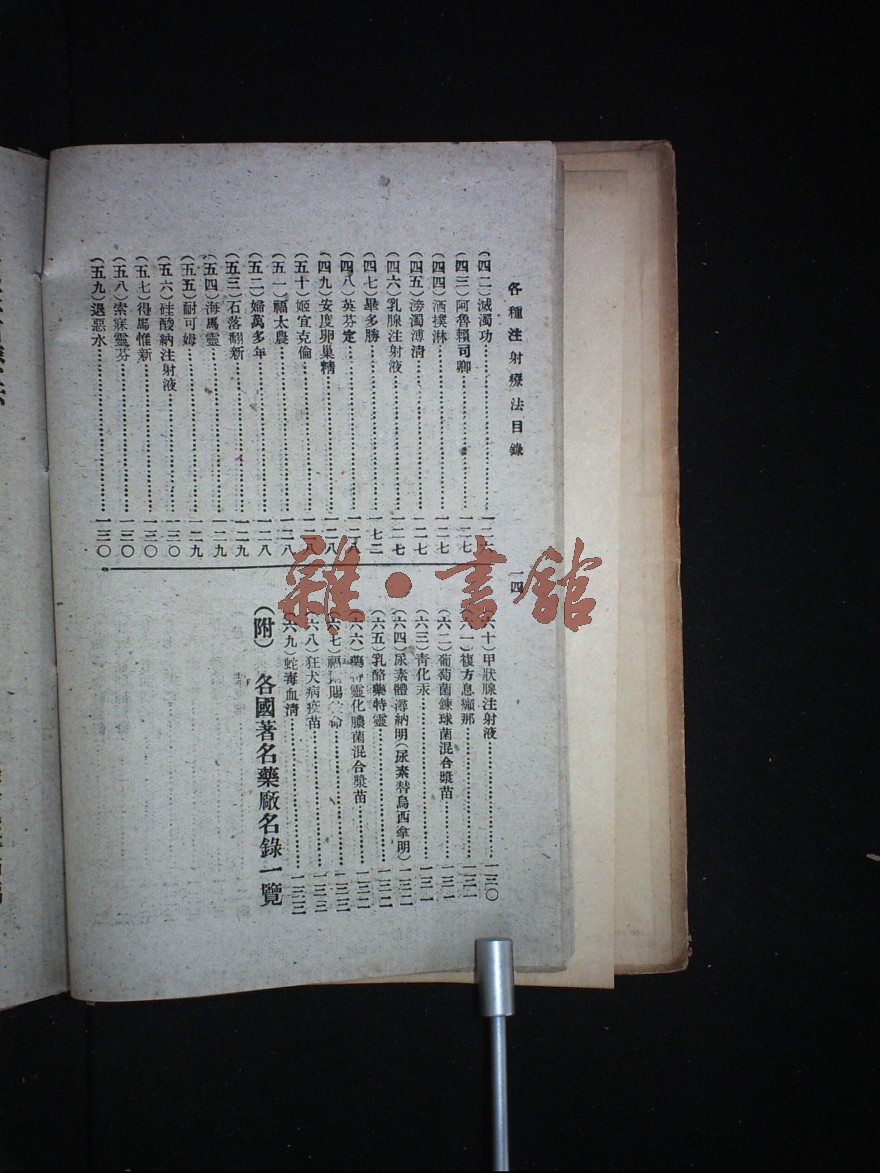 各種注射療法目錄
一四
(四二)滅濁功…………一二六
(四三)阿魯賴司卿…………一二七
(四四)洒撲淋…………一二七
(四五)滂濁溥清…………一二七
(四六)乳腺注射液…………一二七
(四七)畢多勝…………一七二
(四八)英芬定…………一二八
(四九)安度卵巢精…………一二八
(五十)姬宜克倫…………一二八
(五一)福太農…………一二八
(五二)婦萬多年…………一二八
(五三)石落翻新…………一二九
(五四)海馬靈…………一二九
(五五)耐可姆…………一二九
(五六)硅酸納注射液…………一三〇
(五七)得馬惟新…………一三〇
(五八)索寐靈芬…………一三〇
(五九)退惡水…………一三〇
(六十)甲狀腺注射液…………一三〇
(六一)複方息癲那…………一三一
(六二)葡萄菌鍊球菌混合漿苗…………一三一
(六三)靑化汞…………一三一
(六四)尿素體潯納明(尿素替烏西拿明)…………一三二
(六五)乳酪藥特靈…………一三二
(六六)藥特靈化膿菌混合漿苗…………一三二
(六七)福 賜 命…………一三三
(六八)狂犬病疫苗…………一三三
(六九)蛇毒血清…………一三三
(附)各國著名藥厰名錄一覽
雜·書館